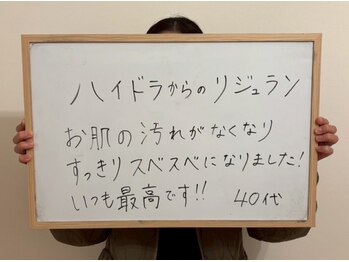 ハイドラからの リジュラン
お肌の汚れがなくなり
すっきりスベスベになりました!
いつも最高です!! 40代